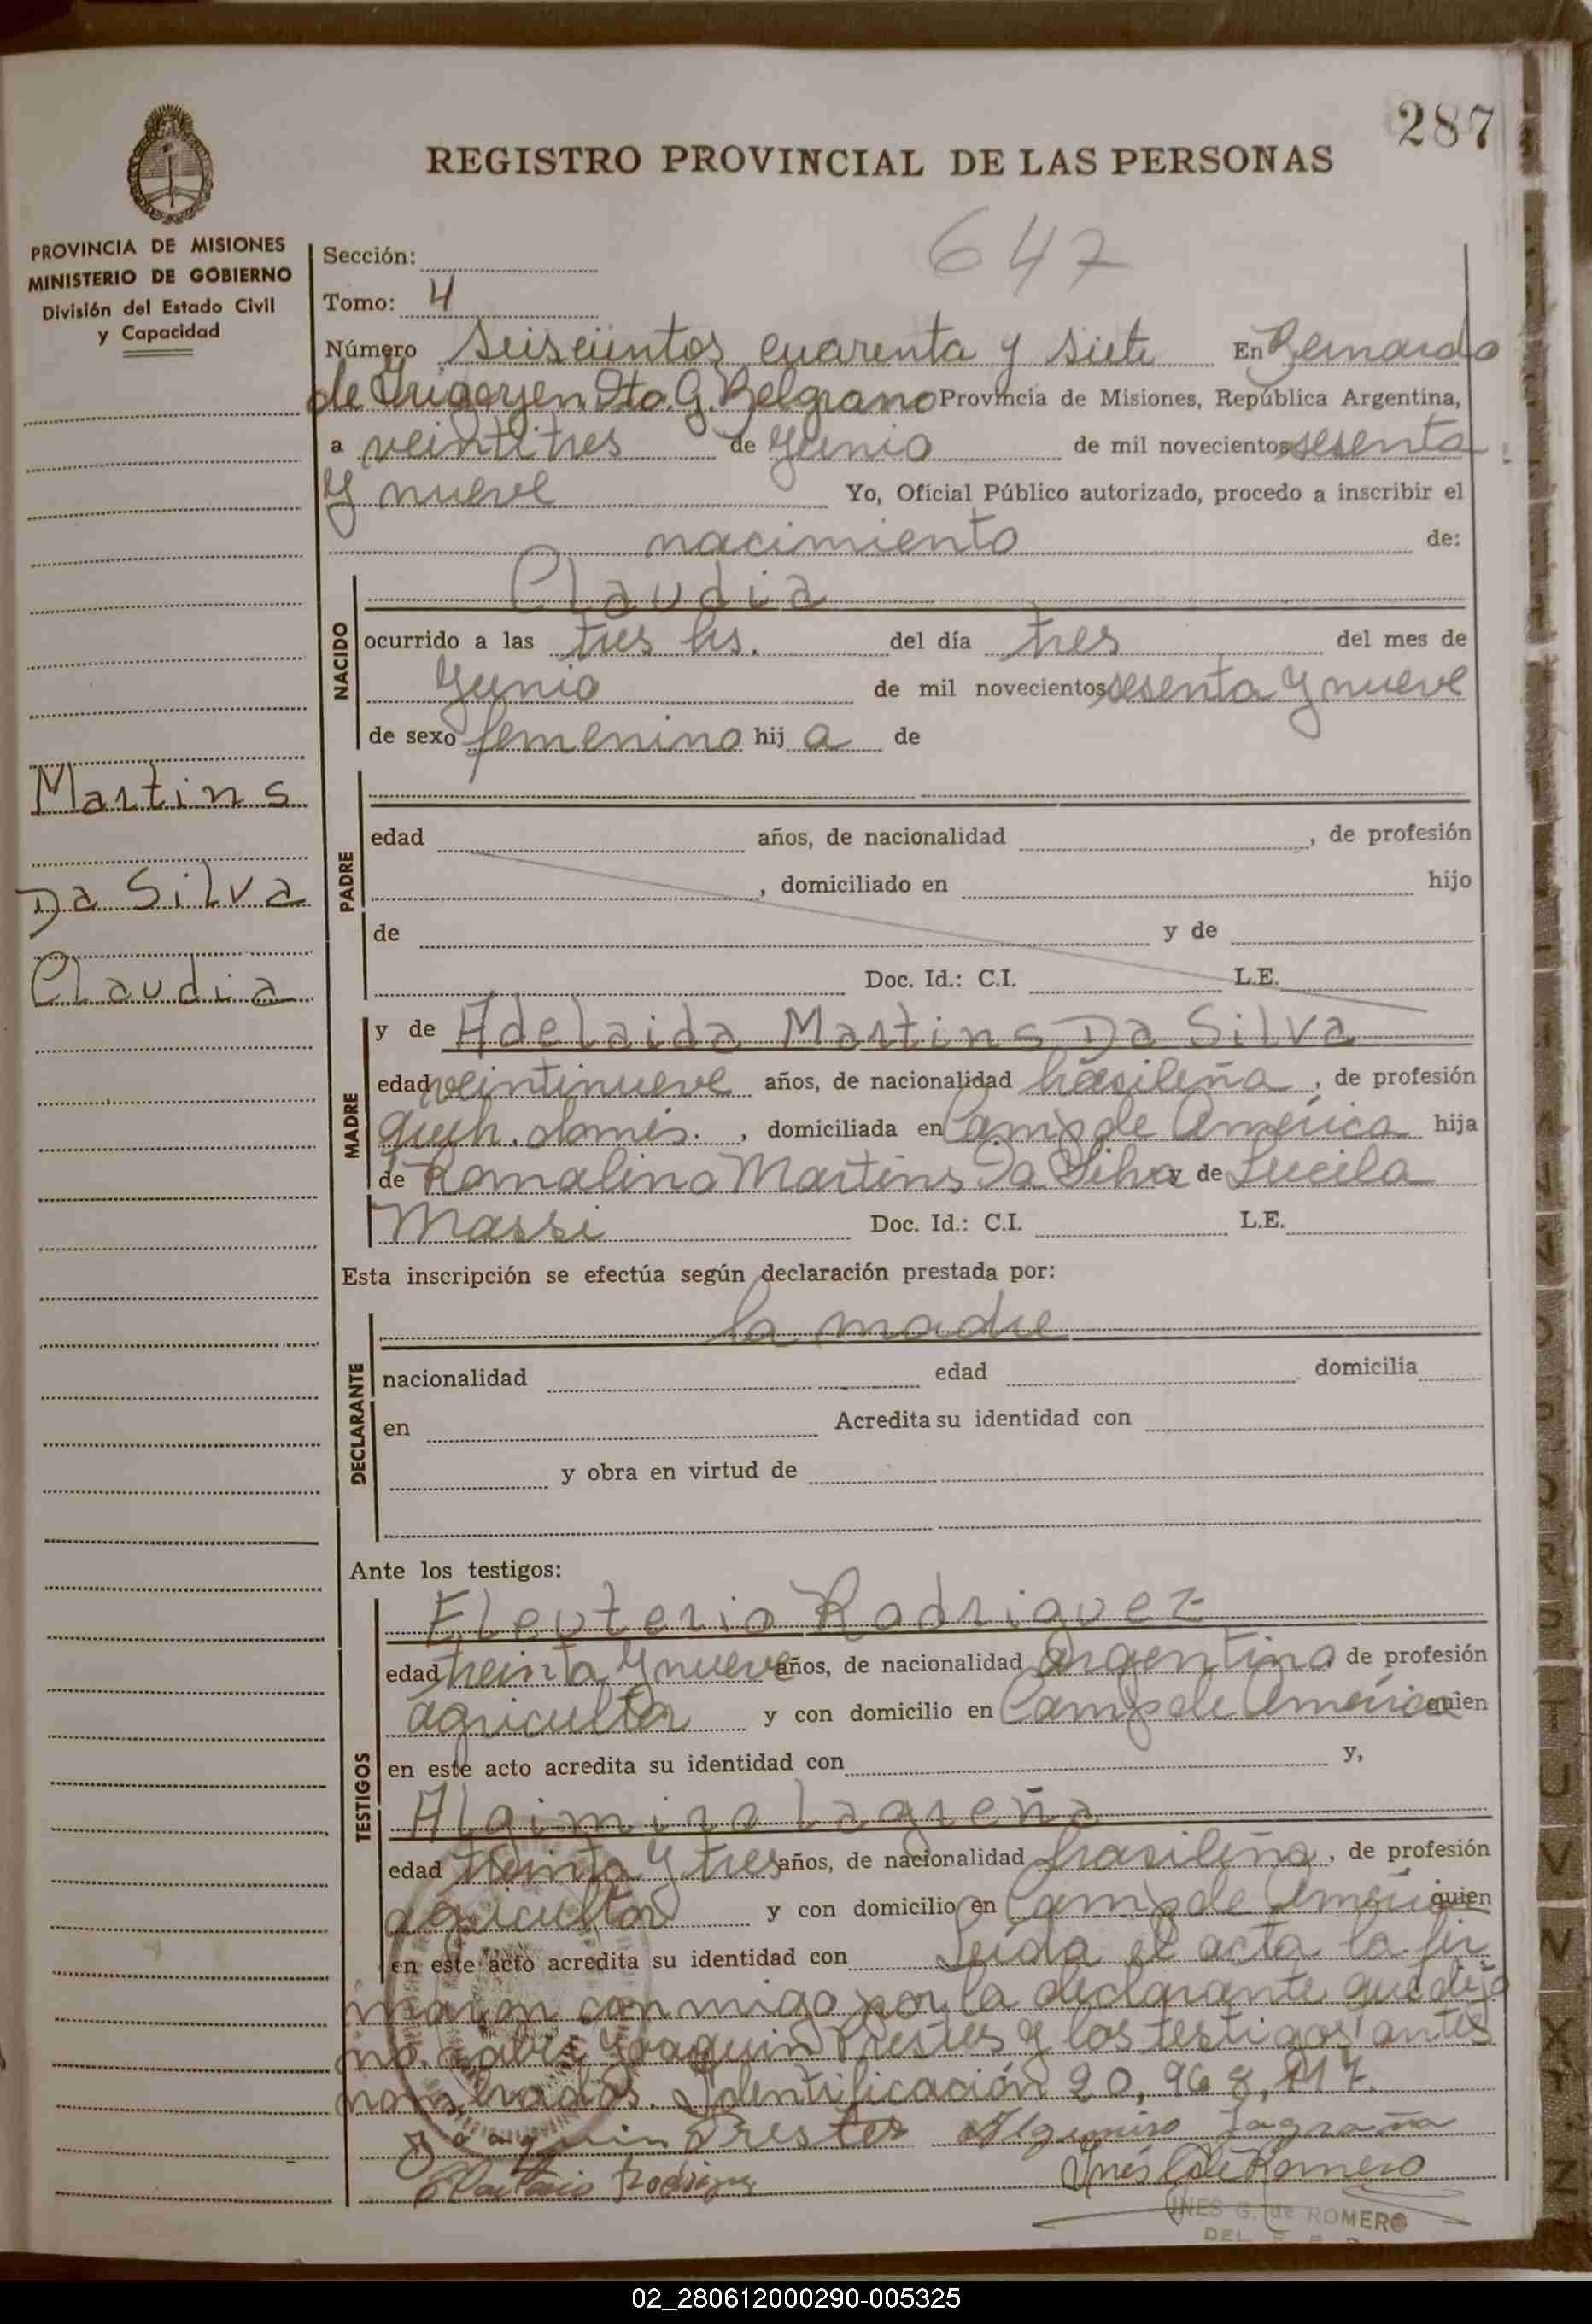 287
REGISTRO PROVINCIAL DE LAS PERSONAS
PROVINCIA DE MISIONES
MINISTERIO DE GOBIERNO
División del Estado Civil
y Capacidad
647
Sección:
Tomo: 4
Número Seiscientos cuarenta y siete En Bernardo
de Yrigoyen Dto. G. Belgrano Provincia de Misiones, República Argentina,
a veintitres de Junio de mil novecientos sesenta
y nueve Yo, Oficial Público autorizado, procedo a inscribir el
nacimiento de:
NACIDO
Claudia
ocurrido a las tres hs. del día tres del mes de
Junio de mil novecientos sesenta y nueve
de sexo femenino hij a de
Martins
Da Silva
Claudia
PADRE
edad años, de nacionalidad , de profesión
, domiciliado en hijo
de y de
Doc. Id.: C.I. L.E.
MADRE
y de Adelaida Martins Da Silva
edad veintinueve años, de nacionalidad brasileña, de profesión
queh. domés. , domiciliada en Campo de América hija
de Romalino Martins Da Silva y de Lucila
Massi Doc. Id.: C.I. L.E.
Esta inscripción se efectúa según declaración prestada por:
DECLARANTE
la madre
nacionalidad edad domicilia
en Acredita su identidad con
y obra en virtud de
Ante los testigos:
TESTIGOS
Eleuterio Rodriguez
edad treinta y nueve años, de nacionalidad argentina de profesión
agricultor y con domicilio en Camp de América quien
en este acto acredita su identidad con y,
Algimiro Lagreña
edad treinta y tres años, de nacionalidad brasileña, de profesión
agricultor y con domicilio en Camp de América quien
en este acto acredita su identidad con Leída el acta la fir
maron conmigo por la declarante que dijo
no saber Joaquin Prestes y los testigos antes
nombrados. Identificación 20,968,117.
Joaquin Prestes Algimiro Lagraña
Eleuterio Rodriguez Inés G de Romero
INES G. de ROMERO
DEL.
02_280612000290-005325